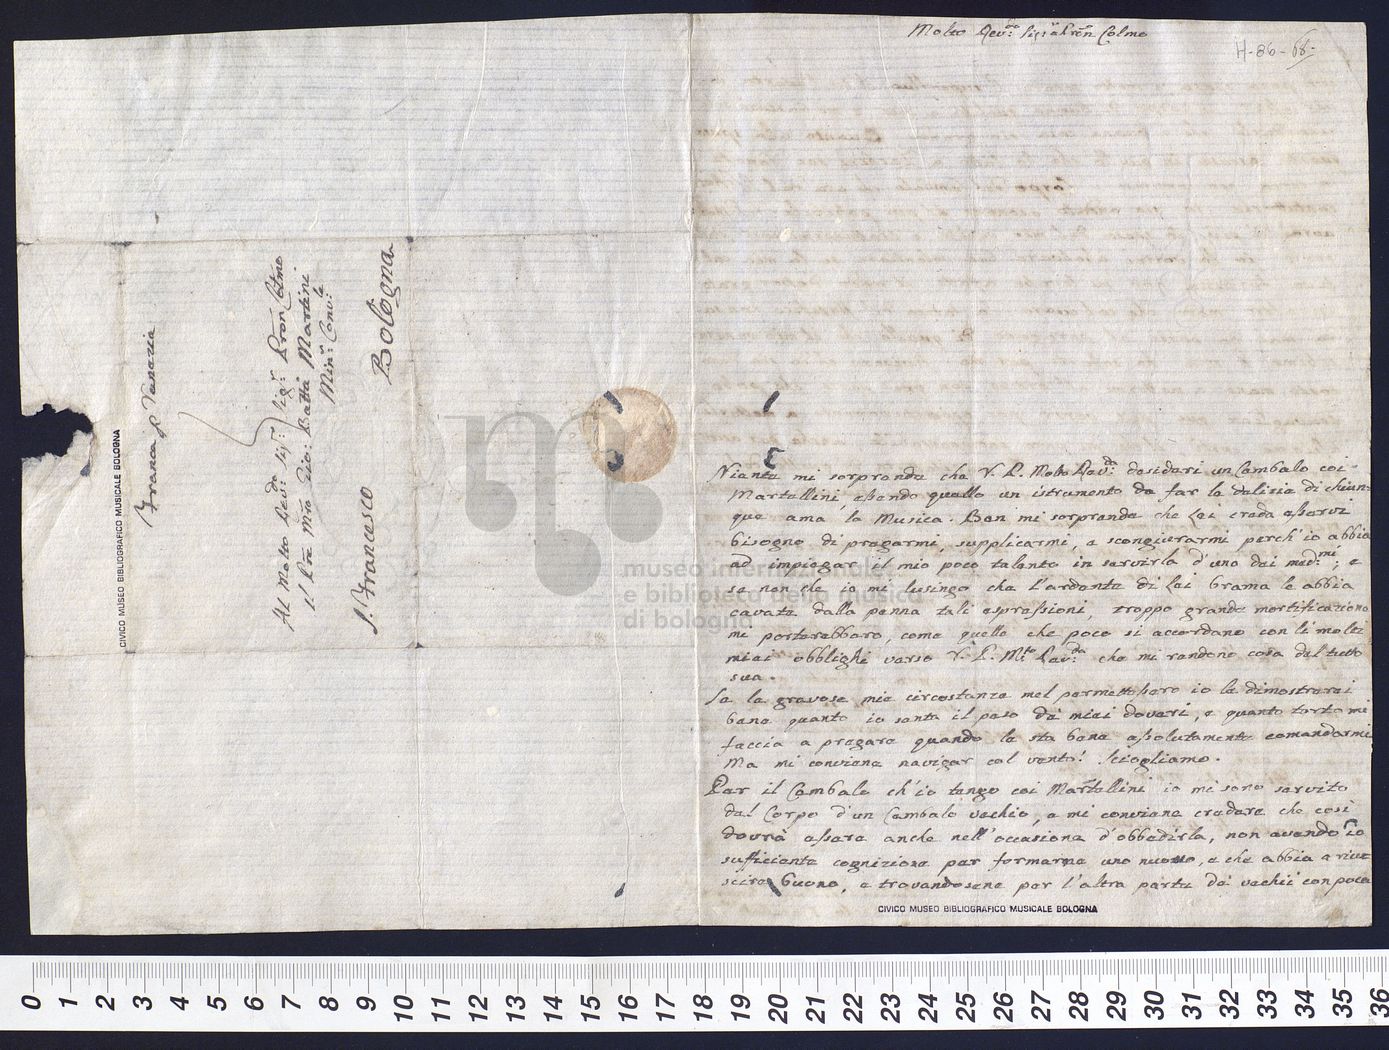 Franca p Venezia
Al Molto Revdo Sigr: Pron Colmo
il Pre Mro Gio: Batta Martini
Minr: Convle
S. Francesco
Bologna
CIVICO MUSEO BIBLIOGRAFICO MUSICALE BOLOGNA
Molto Revdo: Pron Colmo
H-86-68-
Niente mi sorprende che V. P. Molto Revda: desideri un Cembalo coi
Martellini, essendo quello un istrumento da far la delizia di chiun-
que ama la Musica. Ben mi sorprende che Lei creda esservi
bisogno di pregarmi, supplicarmi, e scongiurarmi perch'io abbia
ad impiegar il mio poco talento in servirla d'uno dei medmi; e
se non che io mi lusingo che l'ardente di Lei brama le abbia
cavate dalla penna tali espressioni, troppo grande mortificazione
mi porterebbero, come quelle che poco si accordano con li molti
miei obblighi verso V. P. Mto Revda: che mi rendono cosa del tutto
sua.
Se le gravose mie circostanze mel permettessero io le dimostrerei
bene quanto io senta il peso de' miei doveri, e quanto torto mi
faccia a pregare quando le sta bene assolutamente comandarmi
Ma mi conviene navigar col vento! Sciogliamo.
Per il Cembalo ch'io tengo coi Martellini io mi sono servito
del Corpo d'un Cembalo vechio, e mi conviene credere che così
dovrà essere anche nell'occasione d'obbedirla, non avendo io
sufficiente cognizione per formarne uno nuovo, e che abbia a riu-
scire buono, e trovandosene per l'altra parte de' vechi con poca
CIVICO MUSEO BIBLIOGRAFICO MUSICALE BOLOGNA
museo internazionale
e biblioteca della musica
di bologna
0 1 2 3 4 5 6 7 8 9 10 11 12 13 14 15 16 17 18 19 20 21 22 23 24 25 26 27 28 29 30 31 32 33 34 35 36